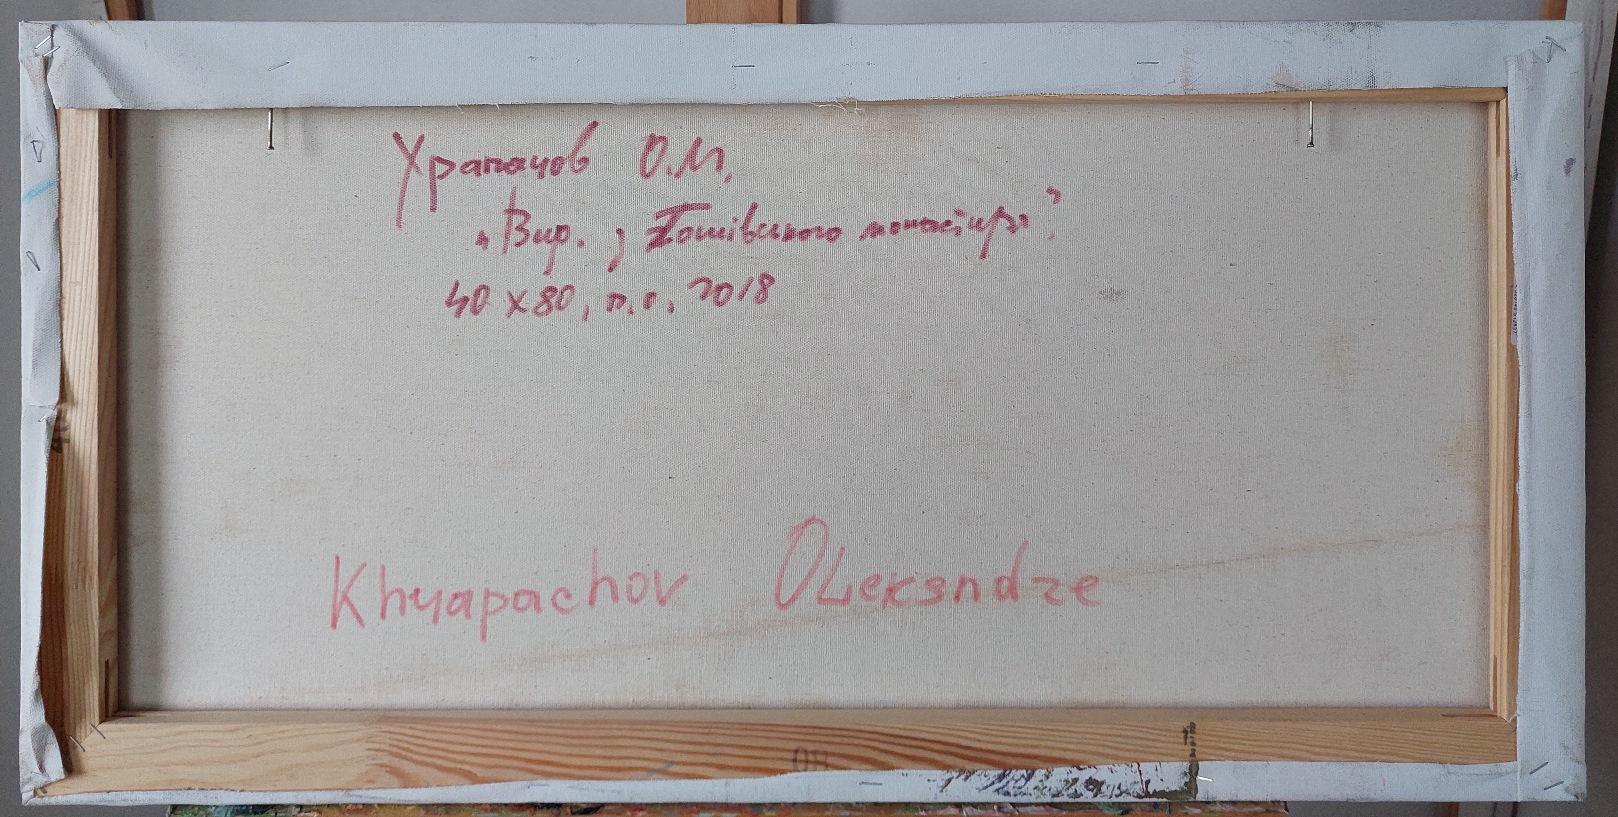 Храпачов О.М.
„Вир. з Гошівського монастиря"
40 x 80, п.о. 2018
Khyapachov Oleksndre